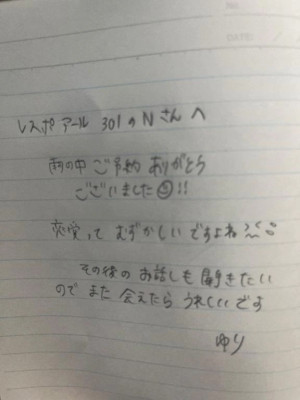 レスポアール 301のNさんへ
雨の中 ご予約 ありがとう
ございました!!
恋愛って むずかしいですよね
その後の お話しも 聞きたい
ので また 会えたら うれしいです
ゆり